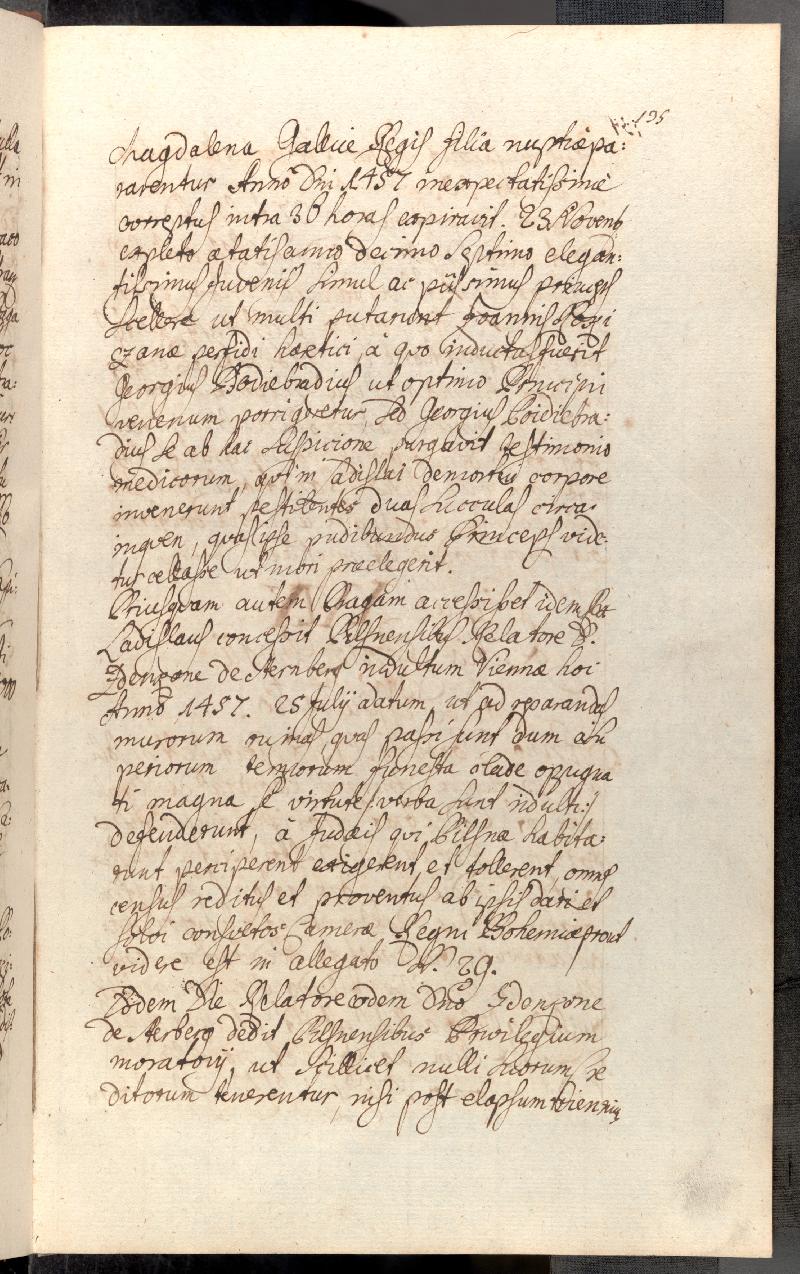 195
Magdalena Galliæ Regis filia nuptiæ pa:
rarentur Anno Dni 1457 inexpectatissimè
correptus intra 36 horas expiravit. 23 Novemb
expleto ætatis anno decimo septimo elegan:
tissimus Juvenis simul ac piissimus princeps
scelere ut multi putarunt Joannis Roki
czanæ perfidi hæretici, à quo inductus fuerit
Georgius Podiebradius ut optimo Principi
venenum porrigeretur, sed Georgius Poidiebra:
dius se ab hac suspicione purgavit testimonio
medicorum, qui in Ladislai demortui corpore
invenerunt pestilentes duas succulas circa
inguen, quas ipse pudibundus Princeps vide
tur cellasse ut mori praelegerit.
Priusquam autem Pragam accessisset idem
Ladislaus concessit Pilsnensibus. Relatore D.
Zdenkone de Sternberg indultum Viennæ hoc
Anno 1457. 25 July datum, ut ad reparandas
murorum ruinas, quas passi sunt dum à su
periorum temporum funesta clade opugna
ti magna se virtute /: verba sunt indulti :/
defenderunt, à Judæis qui Pilsnæ habita:
runt perciperent exigerent, et tollerent, omnes
census reditus et proventus ab ipsis dari et
solvi consvetos Cameræ Regni Bohemiæ prout
videre est in allegato Nr. 29.
Eodem Die Relatore eodem Dno Zdenkone
de Sterberg dedit Pilsnensibus Privilegium
moratorij, ut scillicet nulli suorum cre
ditorum tenerentur, nisi post elapsum